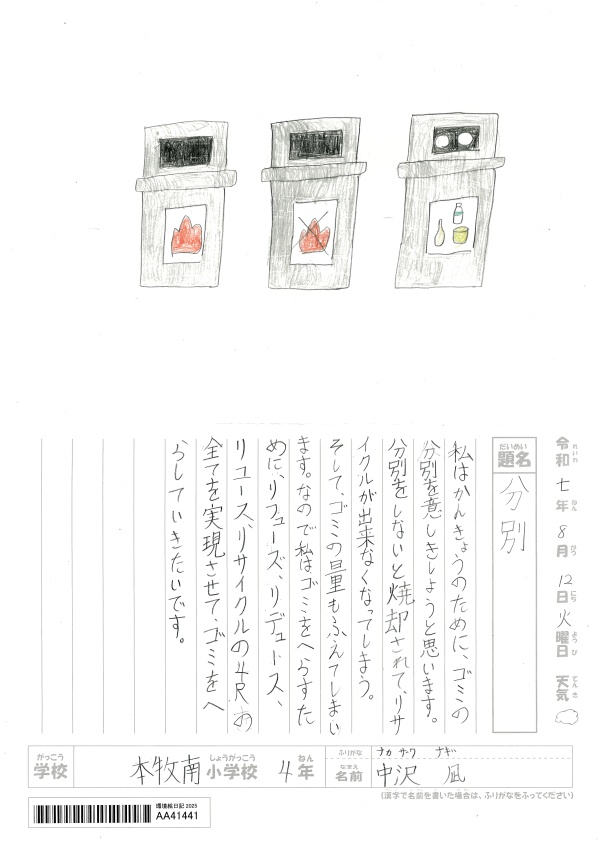 令和七年8月12日火曜日 天気
れいわ ねん がつ にち ようび てんき
だいめい
題名
分別
私はかんきょうのために、ゴミの
分別を意しきしようと思います。
分別をしないと焼却されて、リサ
イクルが出来なくなってしまう。
そして、ゴミの量もふえてしまい
ます。なので私はゴミをへらすた
めに、リフューズ、リデュース、
リユース、リサイクルの4Rの
全てを実現させて、ゴミをへ
らしていきたいです。
がっこう
学校
本牧南小学校 4年
しょうがっこう ねん
ふりがな
ナカ サーワ ナギ
なまえ
名前
中沢 凪
(漢字で名前を書いた場合は、ふりがなをふってください)
環境絵日記 2025
AA41441